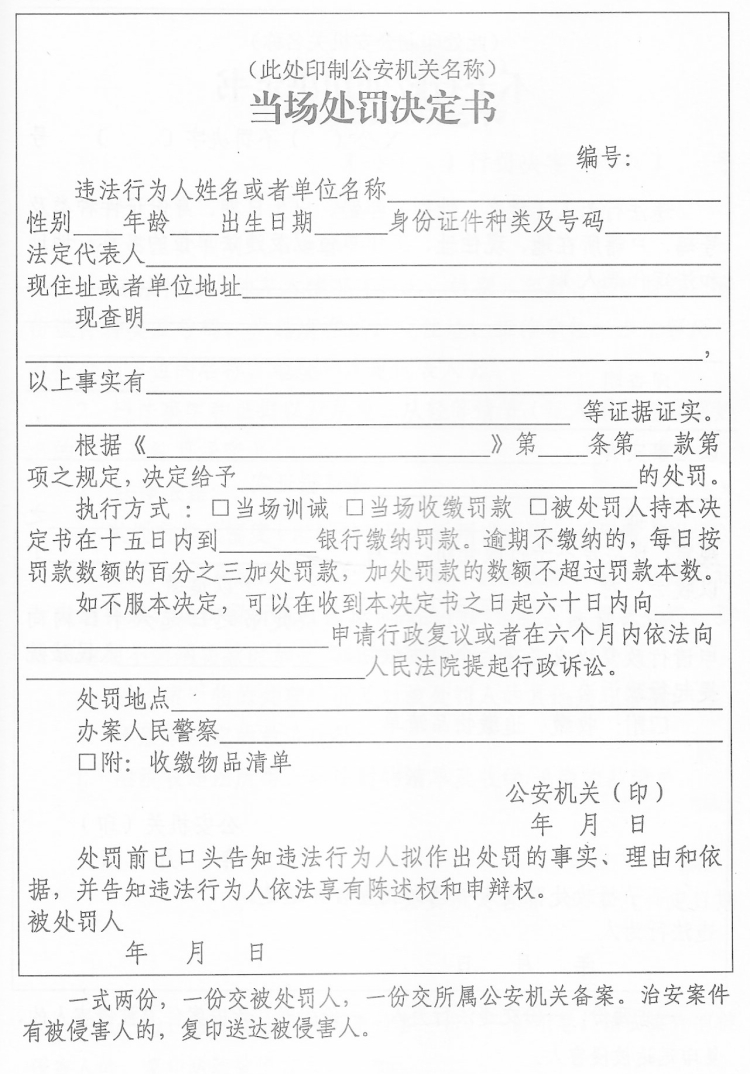 （此处印制公安机关名称）
当场处罚决定书
编号：
违法行为人姓名或者单位名称____________
性别____年龄____出生日期______身份证件种类及号码________
法定代表人____________
现住址或者单位地址____________
现查明____________
____________，
以上事实有____________
____________等证据证实。
根据《____________》第____条第___款第
项之规定，决定给予____________的处罚。
执行方式：□当场训诫 □当场收缴罚款 □被处罚人持本决
定书在十五日内到________银行缴纳罚款。逾期不缴纳的，每日按
罚款数额的百分之三加处罚款，加处罚款的数额不超过罚款本数。
如不服本决定，可以在收到本决定书之日起六十日内向______
____________申请行政复议或者在六个月内依法向
____________人民法院提起行政诉讼。
处罚地点____________
办案人民警察____________
□附：收缴物品清单
公安机关（印）
年 月 日
处罚前已口头告知违法行为人拟作出处罚的事实、理由和依
据，并告知违法行为人依法享有陈述权和申辩权。
被处罚人
年 月 日
一式两份，一份交被处罚人，一份交所属公安机关备案。治安案件
有被侵害人的，复印送达被侵害人。